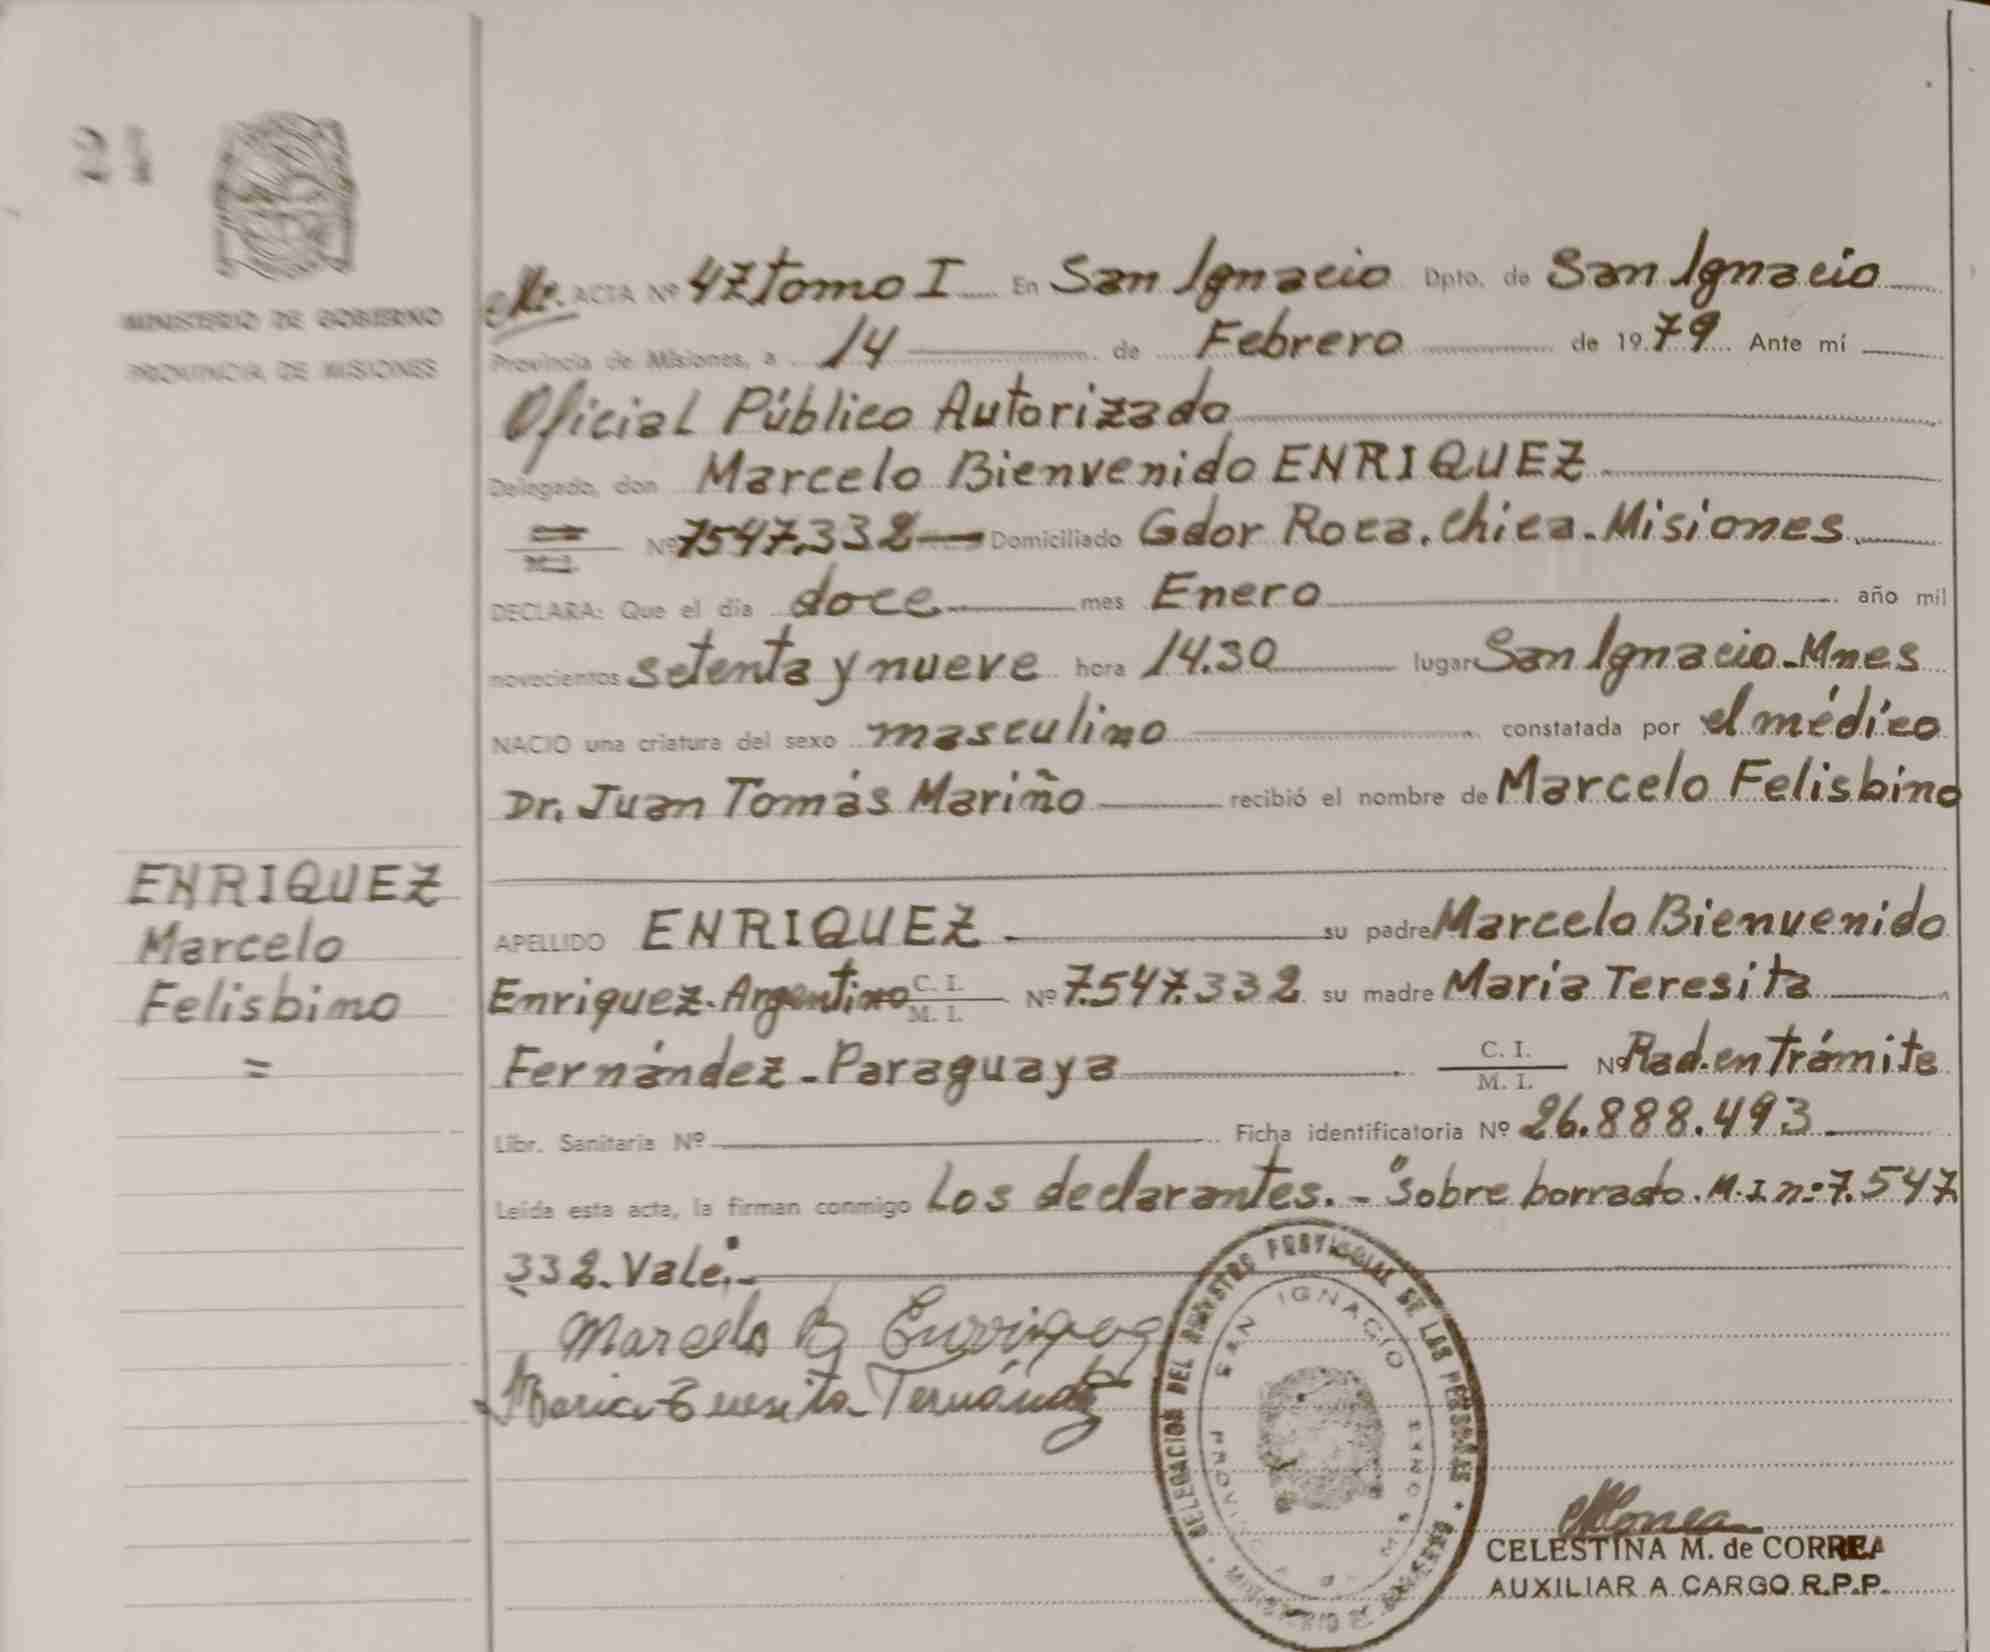 21
MINISTERIO DE GOBIERNO
PROVINCIA DE MISIONES
ACTA Nº 47 Tomo I En San Ignacio Dpto. de San Ignacio
Provincia de Misiones, a 14 de Febrero de 1979 Ante mí
Oficial Público Autorizado
Delegado, don Marcelo Bienvenido ENRIQUEZ
M.I. Nº 7547.332 Domiciliado Gdor Roca. Chica. Misiones
DECLARA: Que el día doce mes Enero año mil
novecientos setenta y nueve hora 14.30 lugar San Ignacio-Mnes
NACIO una criatura del sexo masculino constatada por el médico
Dr. Juan Tomás Mariño recibió el nombre de Marcelo Felisbino
ENRIQUEZ
Marcelo
Felisbino
=
APELLIDO ENRIQUEZ su padre Marcelo Bienvenido
Enriquez-Argentino C. I. M. I. Nº 7.547.332 su madre María Teresita
Fernández-Paraguaya C. I. M. I. Nº Rad. en trámite
Libr. Sanitaria Nº Ficha identificatoria Nº 26.888.493
Leída esta acta, la firman conmigo Los declarantes.- "Sobre borrado. M.I nº 7.547.
332. Vale".-
Marcelo B Enrriquez
Maria Teresita Fernández
DELEGACION DEL REGISTRO PROVINCIAL DE LAS PERSONAS
SAN IGNACIO
CELESTINA M. de CORREA
AUXILIAR A CARGO R.P.P.